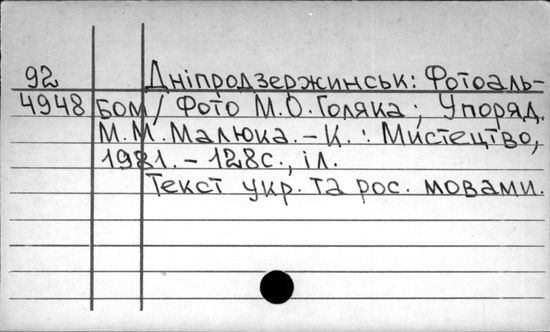 92 Дніпродзержинськ: Фотоаль-
4948 бом / Фото М.О.Голяка ; Упоряд.
М.М.Малюка. – К. : Мистецтво,
1981. – 128с., іл.
Текст укр. та рос. мовами.